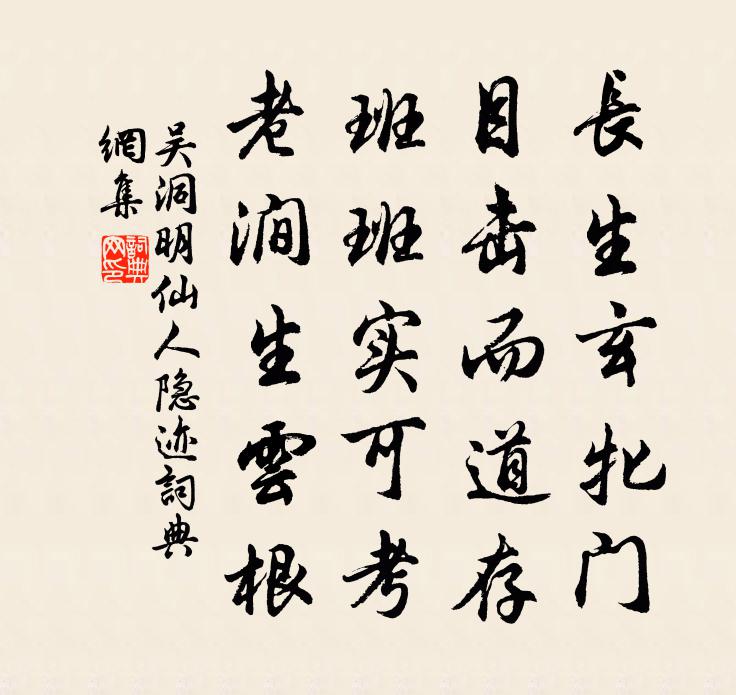 長生玄牝门
目击而道存
班班实可考
老澗生雲根
吴洞明仙人隐迹詞典
網集
詞典
网印